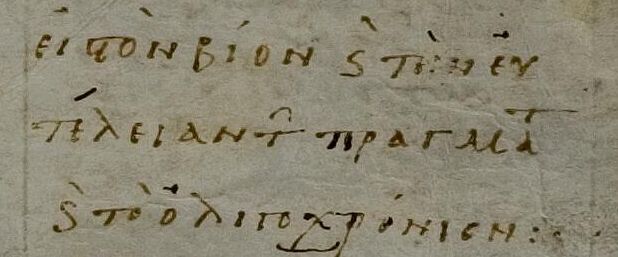 ει τὸν βίον ϗ̀ τὴν ἐυ
τέλειαν τ̑ πραγμάτ
ϗ̀ τὸ ὀλιγοχρόνιον:·